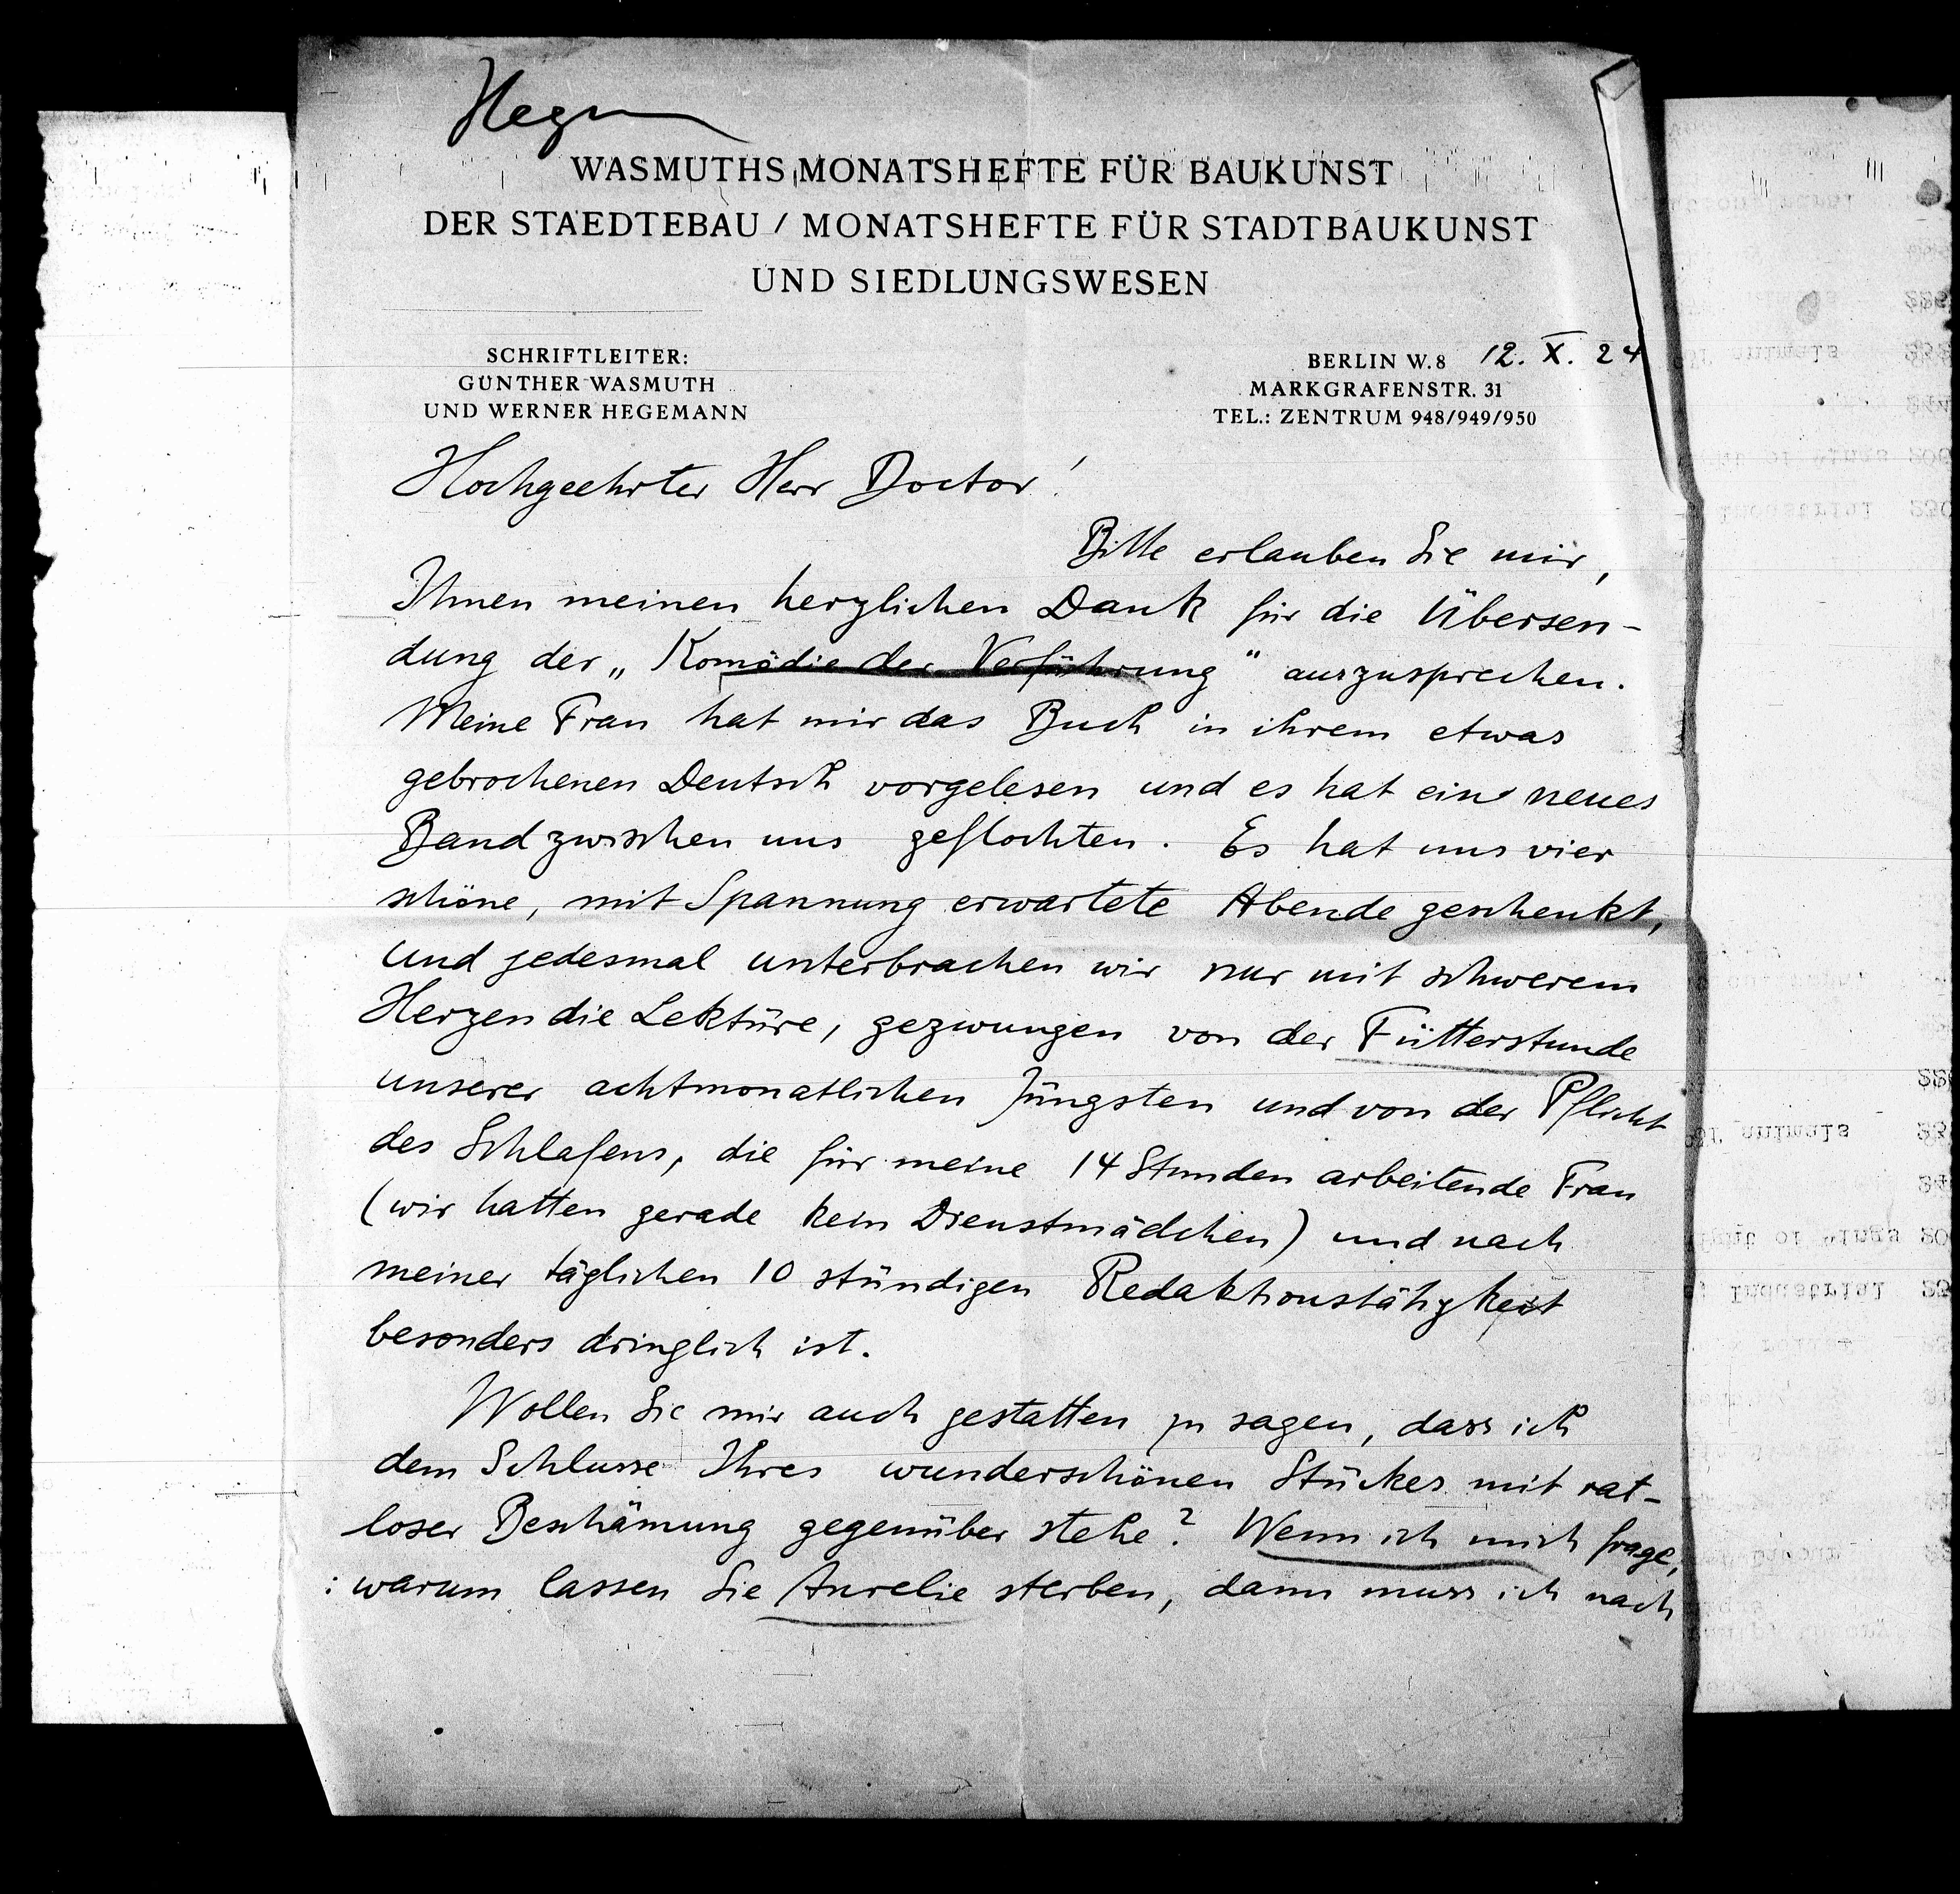 Hegm
WASMUTHS MONATSHEFTE FÜR BAUKUNST
DER STAEDTEBAU / MONATSHEFTE FÜR STADTBAUKUNST
UND SIEDLUNGSWESEN
SCHRIFTLEITER:
GÜNTHER WASMUTH
UND WERNER HEGEMANN
BERLIN W. 8 12. X. 24
MARKGRAFENSTR. 31
TEL.: ZENTRUM 948/949/950
Hochgeehrter Herr Doctor!
Bitte erlauben Sie mir,
Ihnen meinen herzlichen Dank für die Übersen-
dung der „Komödie der Verführung“ auszusprechen.
Meine Frau hat mir das Buch in ihrem etwas
gebrochenen Deutsch vorgelesen und es hat ein neues
Band zwischen uns geflochten. Es hat uns vier
schöne, mit Spannung erwartete Abende geschenkt,
und jedesmal unterbrachen wir nur mit schwerem
Herzen die Lektüre, gezwungen von der Fütterstunde
unserer achtmonatlichen Jüngsten und von der Pflicht
des Schlafens, die für meine 14 Stunden arbeitende Frau
(wir hatten gerade kein Dienstmädchen) und nach
meiner täglichen 10 stündigen Redaktionstätigkeit
besonders dringlich ist.
Wollen Sie mir auch gestatten zu sagen, dass ich
dem Schlusse Ihres wunderschönen Stückes mit rat-
loser Beschämung gegenüber stehe? Wenn ich mich frage,
: warum lassen Sie Aurelie sterben, dann muss ich nach